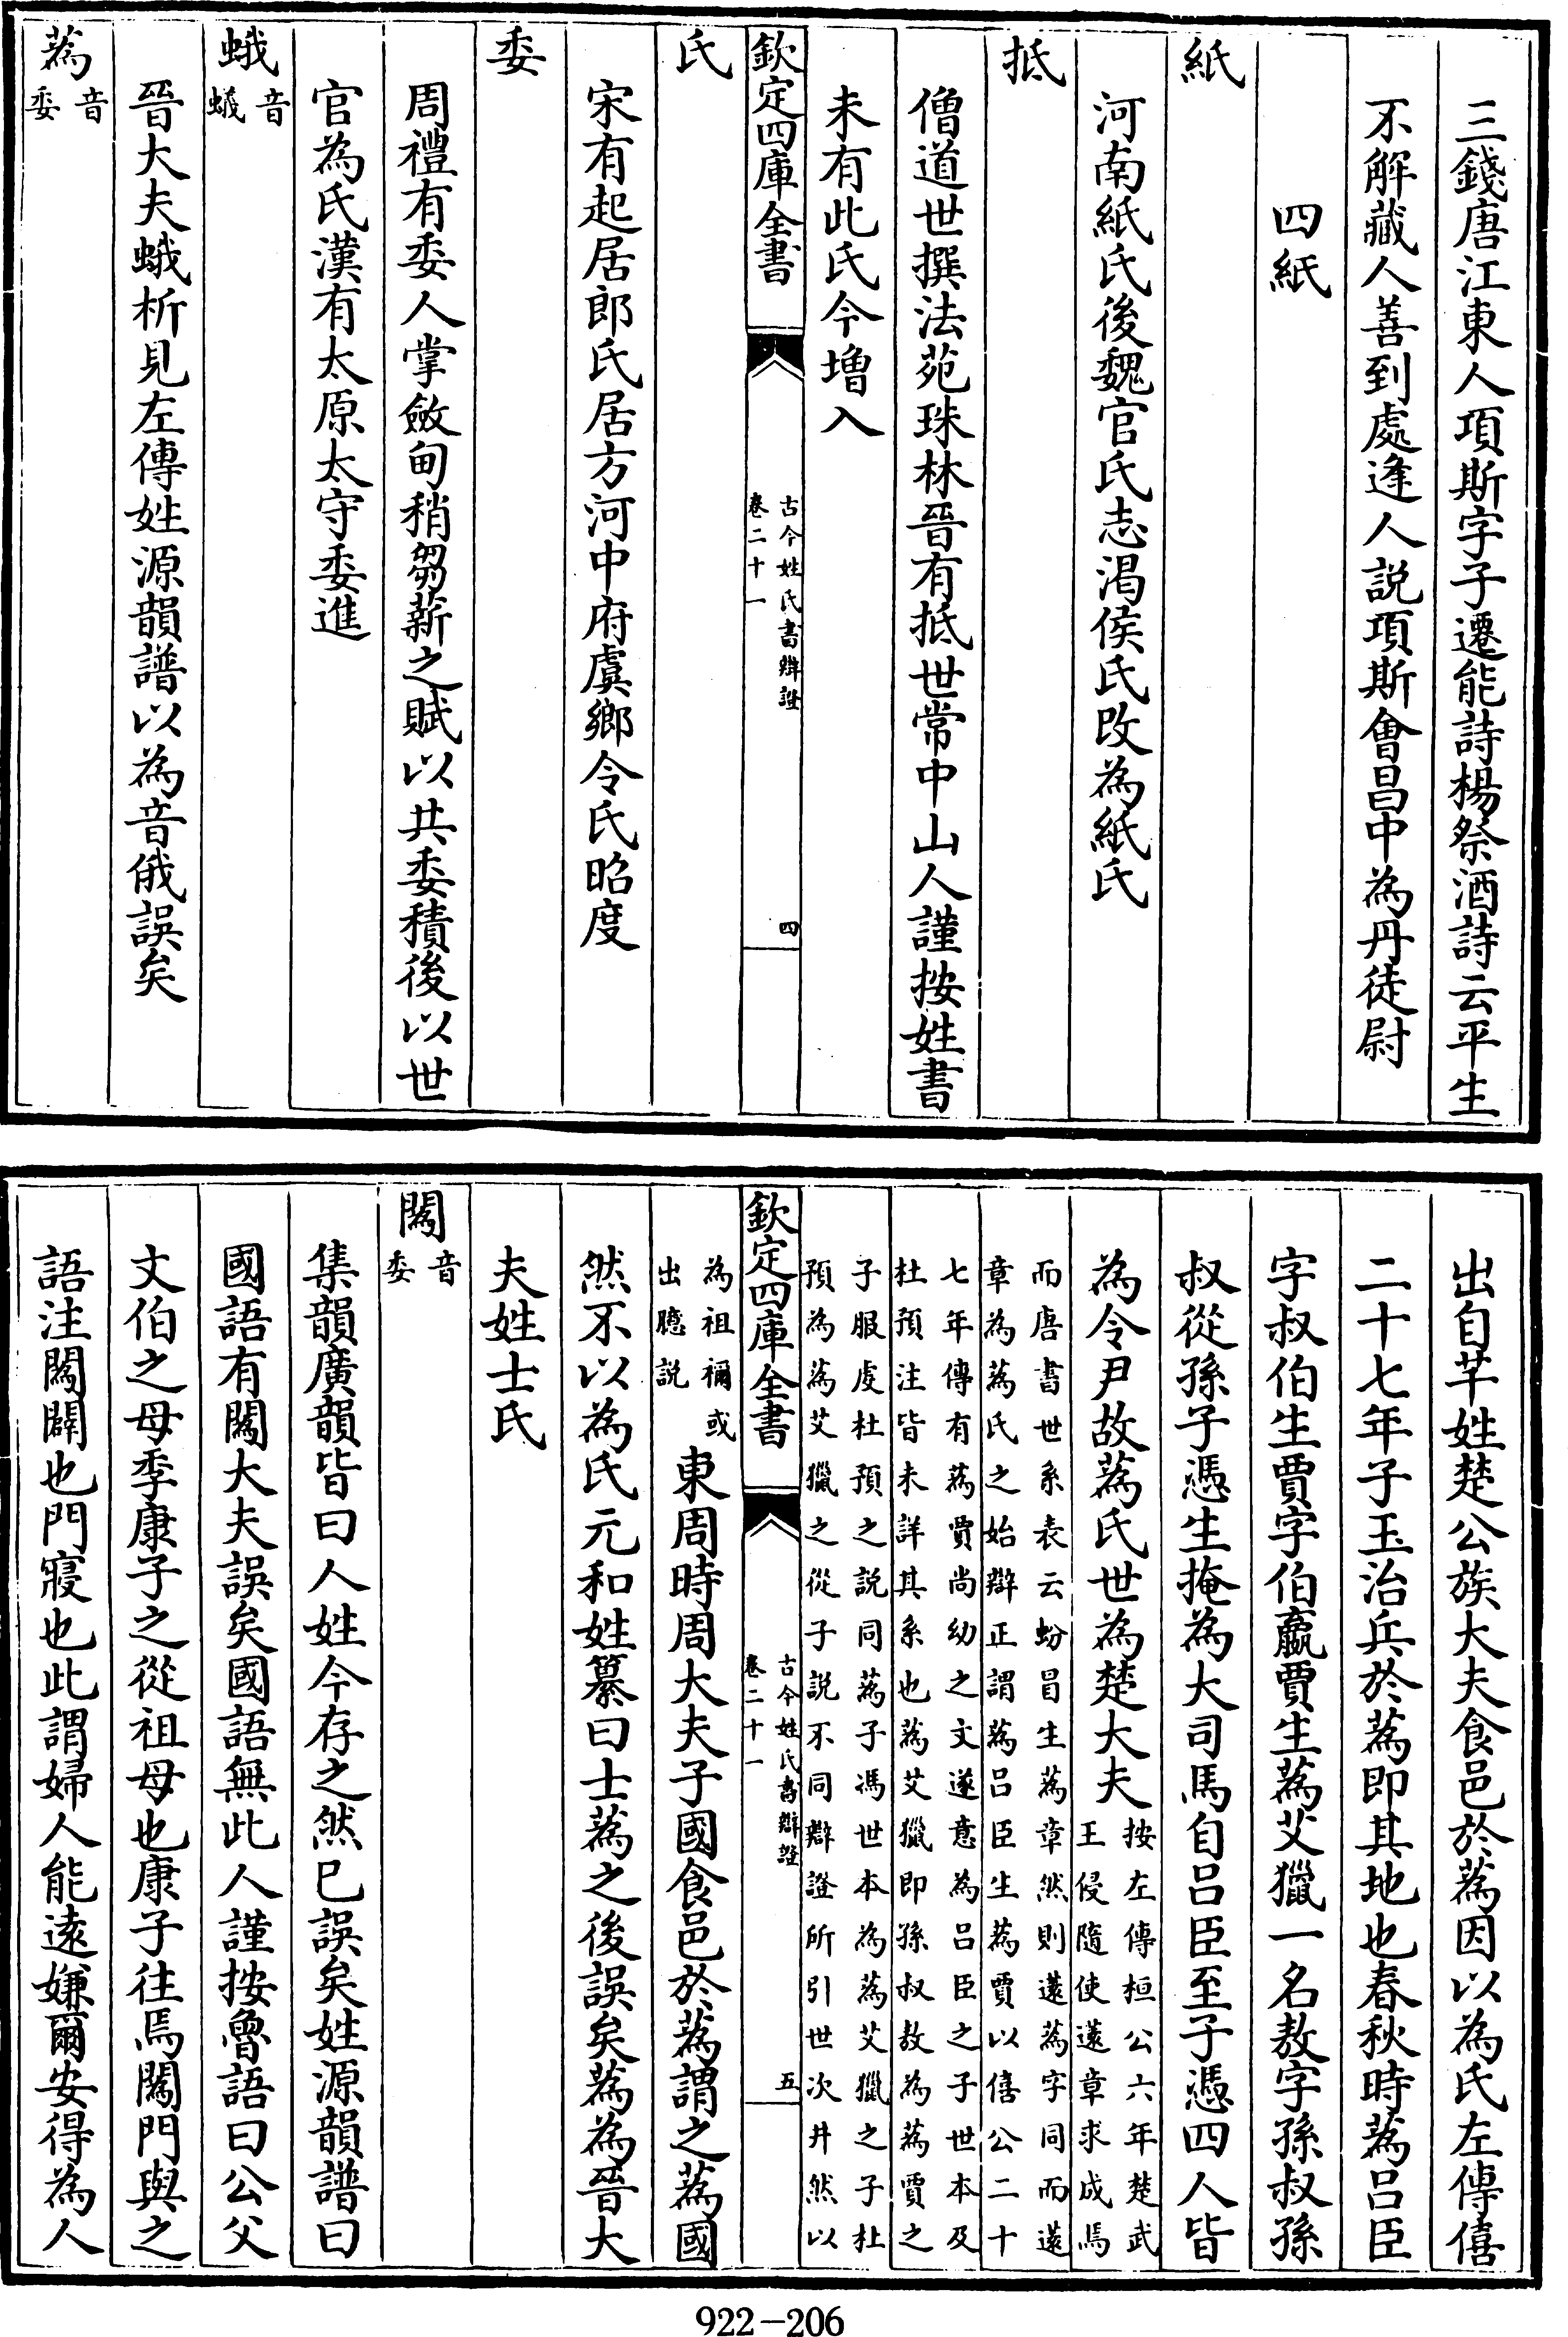 三錢唐江東人項斯字子遷能詩楊祭酒詩云平生
不解藏人善到處逢人説項斯會昌中為丹徒尉
四紙
紙
河南紙氏後魏官氏志渴侯氏改為紙氏
抵
僧道世撰法苑珠林晉有抵世常中山人謹按姓書
未有此氏今增入
欽定四庫全書
古今姓氏書辯證
卷二十一
四
氏
宋有起居郎氏居方河中府虞鄉令氏昭度
委
周禮有委人掌斂甸稍芻薪之賦以共委積後以世
官為氏漢有太原太守委進
蛾音蟻
晉大夫蛾析見左傳姓源韻譜以為音俄誤矣
蒍音委
出自芊姓楚公族大夫食邑於蒍因以為氏左傳僖
二十七年子玉治兵於蒍即其地也春秋時蒍呂臣
字叔伯生賈字伯嬴賈生蒍艾獵一名敖字孫叔孫
叔從孫子憑生掩為大司馬自呂臣至子憑四人皆
為令尹故蒍氏世為楚大夫按左傳桓公六年楚武
王侵隨使薳章求成焉
而唐書世系表云蚡冒生蒍章然則薳蒍字同而薳
章為蒍氏之始辯正謂蒍呂臣生蒍賈以僖公二十
七年傳有蒍賈尚幼之文遂意為呂臣之子世本及
杜預注皆未詳其系也蒍艾獵即孫叔敖為蒍賈之
子服虔杜預之説同蒍子馮世本為蒍艾獵之子杜
預為蒍艾獵之從子説不同辯證所引世次井然以
欽定四庫全書
古今姓氏書辯證
卷二十一
五
為祖禰或
出臆説東周時周大夫子國食邑於蒍謂之蒍國
然不以為氏元和姓纂曰士蒍之後誤矣蒍為晉大
夫姓士氏
闖音委
集韻廣韻皆曰人姓今存之然已誤矣姓源韻譜曰
國語有闖大夫誤矣國語無此人謹按魯語曰公父
文伯之母季康子之從祖母也康子往焉闖門與之
語注闖闢也門寢也此謂婦人能遠嫌爾安得為人
922-206